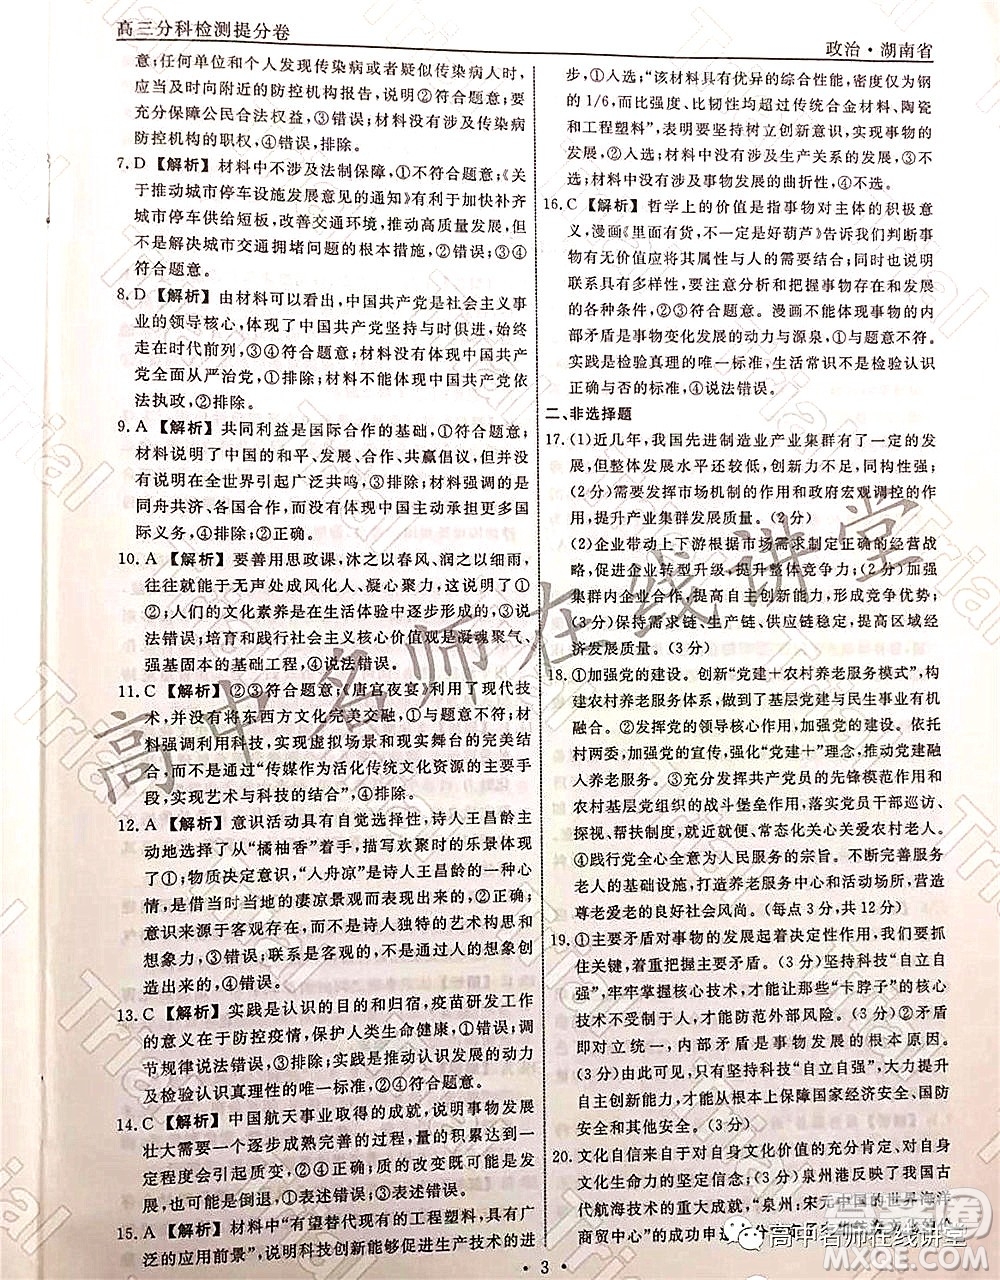 高三分科检测提分卷
政治·湖南省
意；任何单位和个人发现传染病或者疑似传染病人时，
应当及时向附近的防控机构报告，说明②符合题意；要
充分保障公民合法权益，③错误；材料没有涉及传染病
防控机构的职权，④错误，排除。
7. D 【解析】材料中不涉及法制保障，①不符合题意；《关
于推动城市停车设施发展意见的通知》有利于加快补齐
城市停车供给短板，改善交通环境，推动高质量发展，但
不是解决城市交通拥堵问题的根本措施，②错误；③④
符合题意。
8. D 【解析】由材料可以看出，中国共产党是社会主义事
业的领导核心，体现了中国共产党坚持与时俱进，始终
走在时代前列，③④符合题意；材料没有体现中国共产
党全面从严治党，①排除；材料不能体现中国共产党依
法执政，②排除。
9. A 【解析】共同利益是国际合作的基础，①错误，排除。
材料说明了中国的和平、发展、合作、共赢倡议，一再被
说明在全世界引起广泛共鸣，材料强调的是国际社会
同舟共济、各国合作，而没有体现中国主动承担更多国
际义务，④错误；②③正确。
10. A 【解析】要善用思政课，沐之以春风、润之以细雨，
往往就能于无声处成风化人、凝心聚力，这体现了①
②；人们的文化素养是在生活体验中逐步形成的，③
说法错误；培育和践行社会主义核心价值观是凝魂聚气、
强基固本的基础工程，④说法错误。
11. C 【解析】②③符合题意；《唐宫夜宴》利用了现代技
术，并没有将东西方文化完美交融，①与题意不符；材
料强调利用科技，实现虚拟场景和现实舞台的完美结
合，而不是通过“传媒作为活化传统文化资源的主要手
段，实现艺术与科技的结合”，④排除。
12. A 【解析】意识活动具有自觉选择性，诗人王昌龄主
动地选择了从“橘柚香”着手，描写欢聚时的乐景体现
了①；“人舟凉”是诗人王昌龄体验、感受到的一种心
情，是借用景物的凄凉形象来表现出感情，②正确；意
识来源于客观存在，而不是来源于诗人独特的艺术构思和
想象，③错误；联系是客观的，不能通过人的想象创造
出来，④错误。
13. C 【解析】实践是认识的目的和归宿，疫苗研发工作
的意义在于防控疫情，保护人类生命健康，①错误；制
定规律说法错误，③排除；实践是推动认识发展的动力
及检验认识真理性的唯一标准，②④符合题意。
14. C 【解析】中国航天事业取得的成就，说明事物发展
壮大需要一个不断成熟完善的过程；量的积累达到一
定程度必须会引起质变，②④表述正确；质变不一定
都是前进，①表述错误；③表述错误。
15. A 【解析】材料中“有望替代现有的工程塑料，具有广
泛的应用前景”，说明实践创新能够促进生产技术的进
步，①入选；“该材料具有优异的综合性能，密度仅为钢
的1/6，且比强度、比韧性均超过传统合金材料、陶瓷
和工程塑料”，表明要坚持树立创新意识，实现事物的
发展，③入选；材料中没有涉及生产关系的发展，②不
选；材料中没有涉及事物发展的曲折性，④不选。
16. C 【解析】哲学上的价值是指事物对主体的积极意
义，漫画《里面有货，不一定是好葫芦》告诉我们判断事
物有无价值应将其属性与人的需要相结合，同时说明
联系具有多样性，要注意分析和把握事物存在和发展
的条件，②③符合题意。漫画不能体现事物的内部矛盾
是事物变化发展的动力与源泉，①与题意不符。
实践是检验真理的唯一标准，生活常识不是检验认识
正确与否的标准，④说法错误。
二、非选择题
17. (1)近几年，我国先进制造业产业集群有了一定的发
展，但整体发展水平还较低，创新力不足，同质化明显。
(2分)需要发挥市场机制的作用和政府宏观调控的作用，
提升产业集群发展质量。(2分)
(2)企业带动上下游根据市场需求制定正确的经营战
略，促进企业转型升级，提升整体竞争力；(2分)加强
集群内企业合作，提高自主创新能力，形成竞争优势；
(3分)保持需求链、生产链、供应链稳定，提高区域经
济发展质量。(3分)
18. ①加强党的建设。创新“党建＋农村养老服务模式”，构
建农村养老服务体系，做到了基层党建与民生事业有机
融合。②发挥党的领导核心作用，加强党的建设。依托
村两委，加强党的宣传，强化“党建＋”理念，推动党建融
入养老服务。③充分发挥共产党员的先锋模范作用和
农村基层党组织的战斗堡垒作用。党员干部巡访、
探视、帮扶制度，就近就便、常态化关心关爱农村老人。
④践行党全心全意为人民服务的宗旨。不断完善服务
老人的基础设施，打造养老服务中心和活动场所，营造
尊老爱老的良好社会风尚。(每点3分，共12分)
19. ①主要矛盾对事物的发展起着决定性作用，要求我们抓
住关键。(3分)坚持科技“自立自
强”，牢牢掌握核心技术，才能让“卡脖子”的核心
技术不受制于人，才能防范外部风险。(3分)②矛盾
即对立统一，内部矛盾是事物发展的根本原因。
(3分)因此，只有坚持科技“自立自强”，大力提升
自主创新能力，才能从根本上保障国家经济安全、国防安全
和其他安全。(3分)
20. 文化自信来自于对自身文化价值的充分肯定、对自身
文化生命力的坚定信念；(4分)泉州港反映了我国古
代航海技术的伟大成就，“泉州：宋元中国的世界海洋
商贸中心”的成功申遗
· 3 ·
高中名师在线讲堂
高中名师在线讲堂
Trial
MXQE.COM